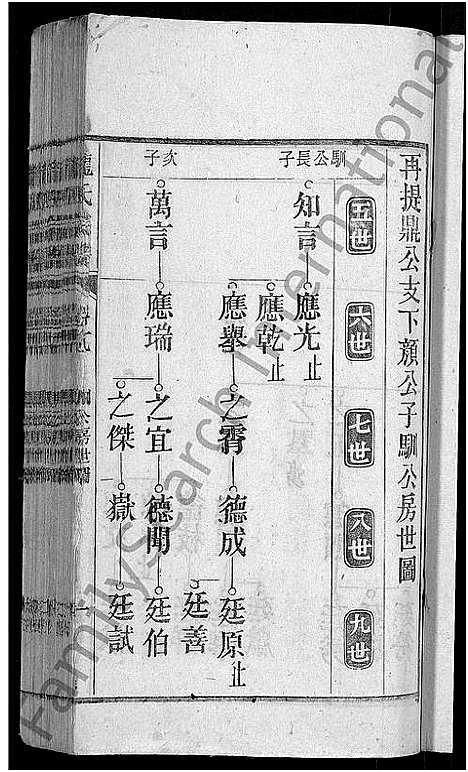 再提鼎公支下顏公子馴公房世圖
五世 六世 七世 八世 九世
馴公長子
知言 應光止
應乾止
應舉 之霄 德成 廷原止
廷善
次子
萬言 應瑞 之宜 德聞 廷伯
之傑 嶽 廷試
FamilySearch International